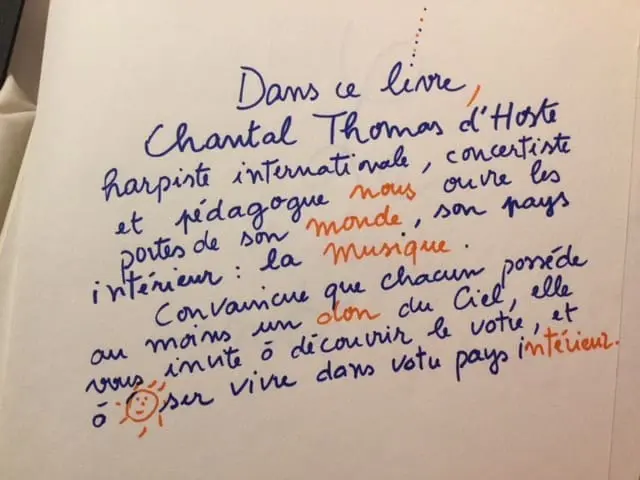 Dans ce livre,
Chantal Thomas d'Hoste
harpiste internationale, concertiste
et pédagogue nous ouvre les
portes de son monde, son pays
intérieur : la musique.
Convaincue que chacun possède
au moins un don du Ciel, elle
vous invite à découvrir le votre, et
à Oser vivre dans votre pays intérieur.